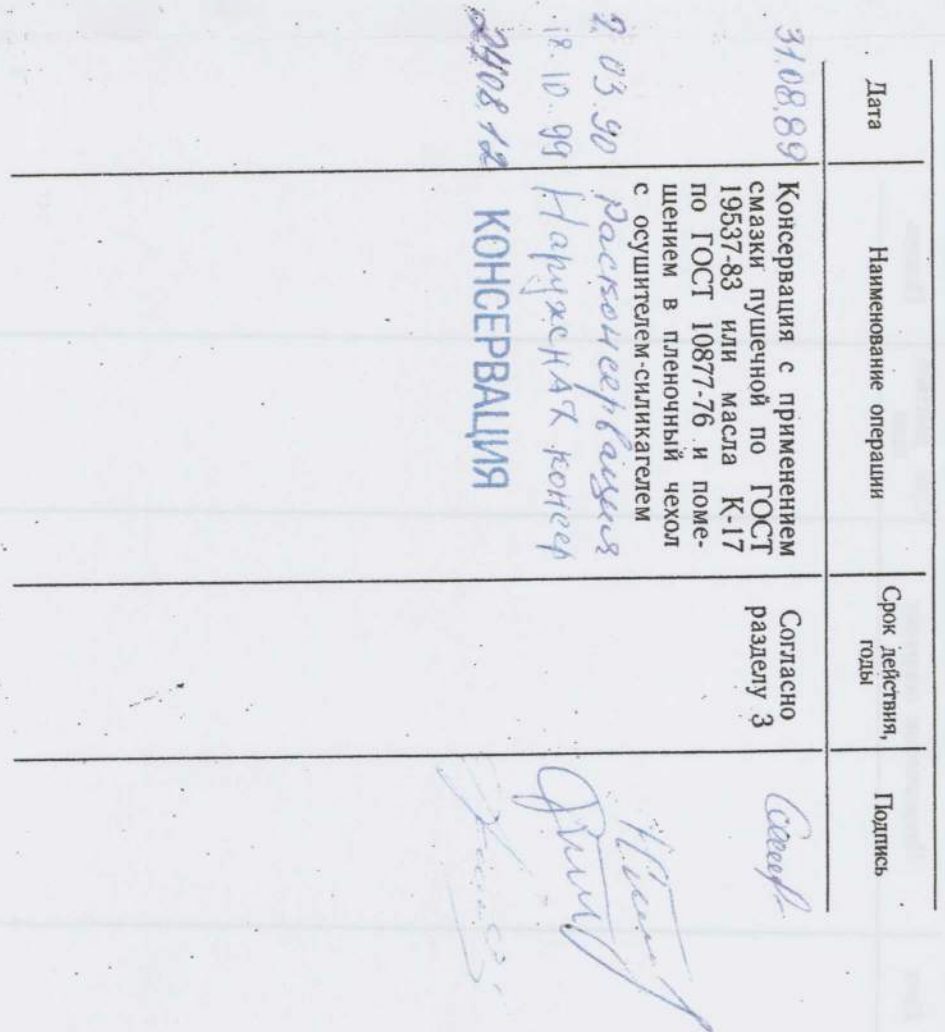 Дата Наименование операции Срок действия, годы Подпись
31.08.89 Консервация с применением
смазки пушечной по ГОСТ
19537-83 или масла К-17
по ГОСТ 10877-76 и поме-
щением в пленочный чехол
с осушителем-силикагелем
Согласно
разделу 3
03.90 Расконсервация
18.10.99 Наружная консер
2408.12 КОНСЕРВАЦИЯ